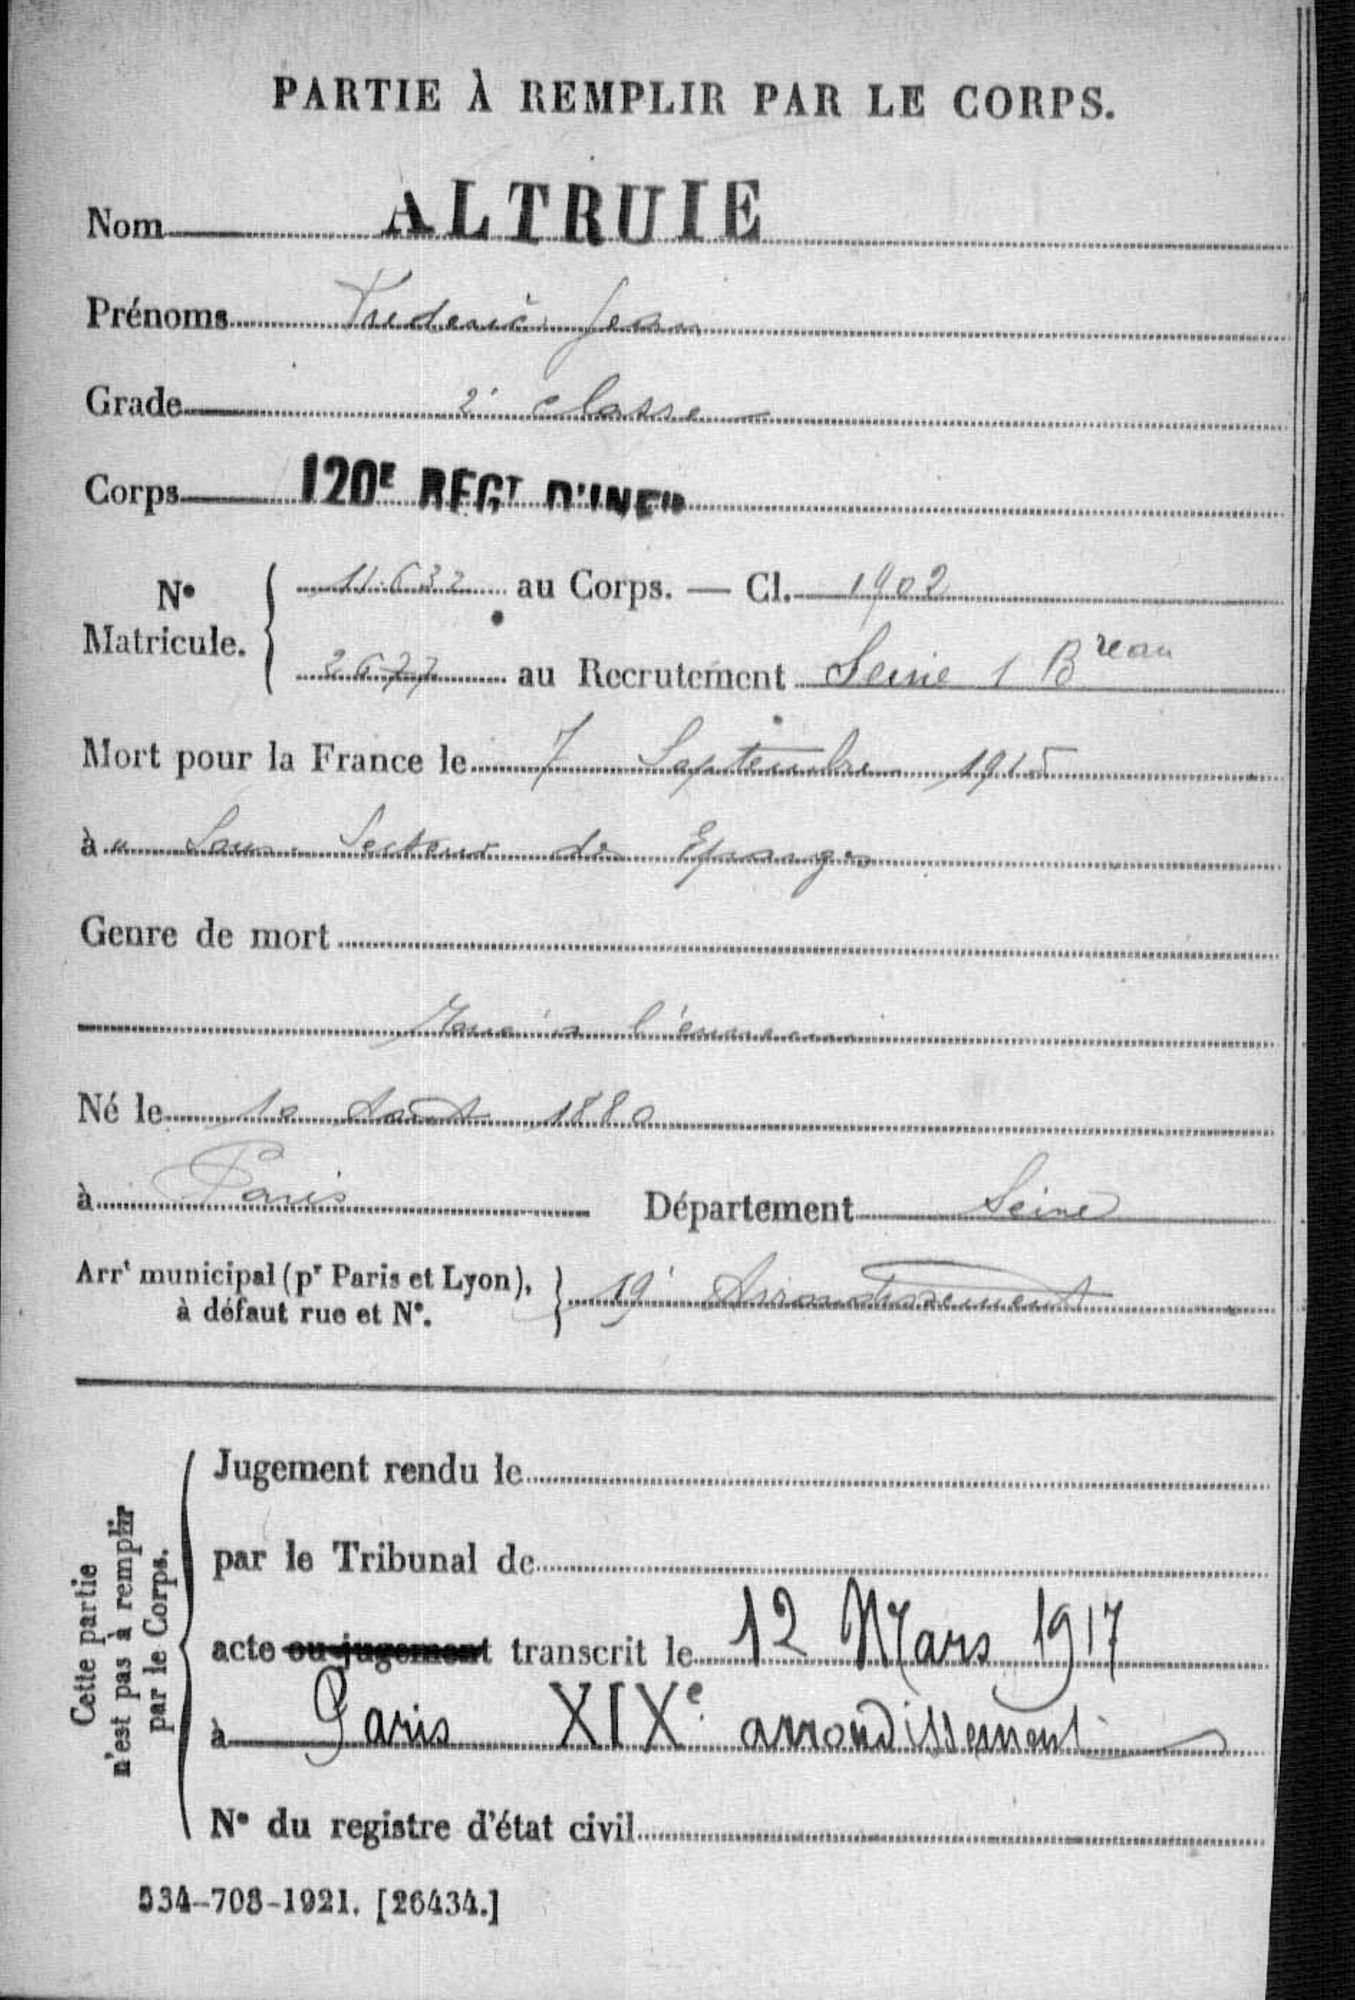 PARTIE À REMPLIR PAR LE CORPS.
Nom ALTRUIE
Prénoms Frederic Jean
Grade 2e classe
Corps 120E REGT D'INFie
No Matricule. 11.632 au Corps. — Cl. 1902
2677 au Recrutement Seine 1 Breau
Mort pour la France le 7 Septembre 1915
à u Sous-Secteur des Eparges
Genre de mort
l'ennemi
Né le 10 Août 1880
à Paris Département Seine
Arrt municipal (pr Paris et Lyon), à défaut rue et No. 19e Arrondissement
Cette partie n'est pas à remplir par le Corps.
Jugement rendu le
par le Tribunal de
acte ou jugement transcrit le 12 Mars 1917
à Paris XIXe arrondissement
No du registre d'état civil
534-708-1921. [26434.]